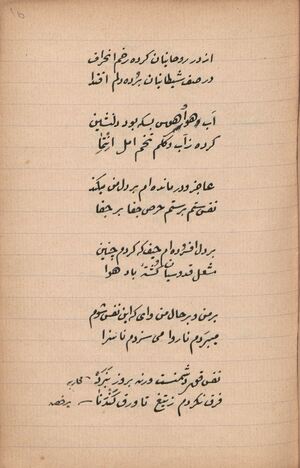 از در روحانیان کرده رخم انحراف
در صف شیطانیان برده دلم اقتدا
آب و هوا و هوس بسکه بود دلنشین
کرده ز آب و گلم تخم امل انتما
عاجز و درمانده ام بر دل من میکند
نفس ستم بر ستم حرص جفا بر جفا
بر دل افسرده ام حیف که کردم چنین
مشعل قدوسیان کشته باد هوا
بر من و بر حال من وای که این نفس شوم
میبردم ناروا می سزدم ناسزا
نفس قوی دشمنست ورنه بروز نبرد
فرق نکردم ز تیغ تا ورق گندنا